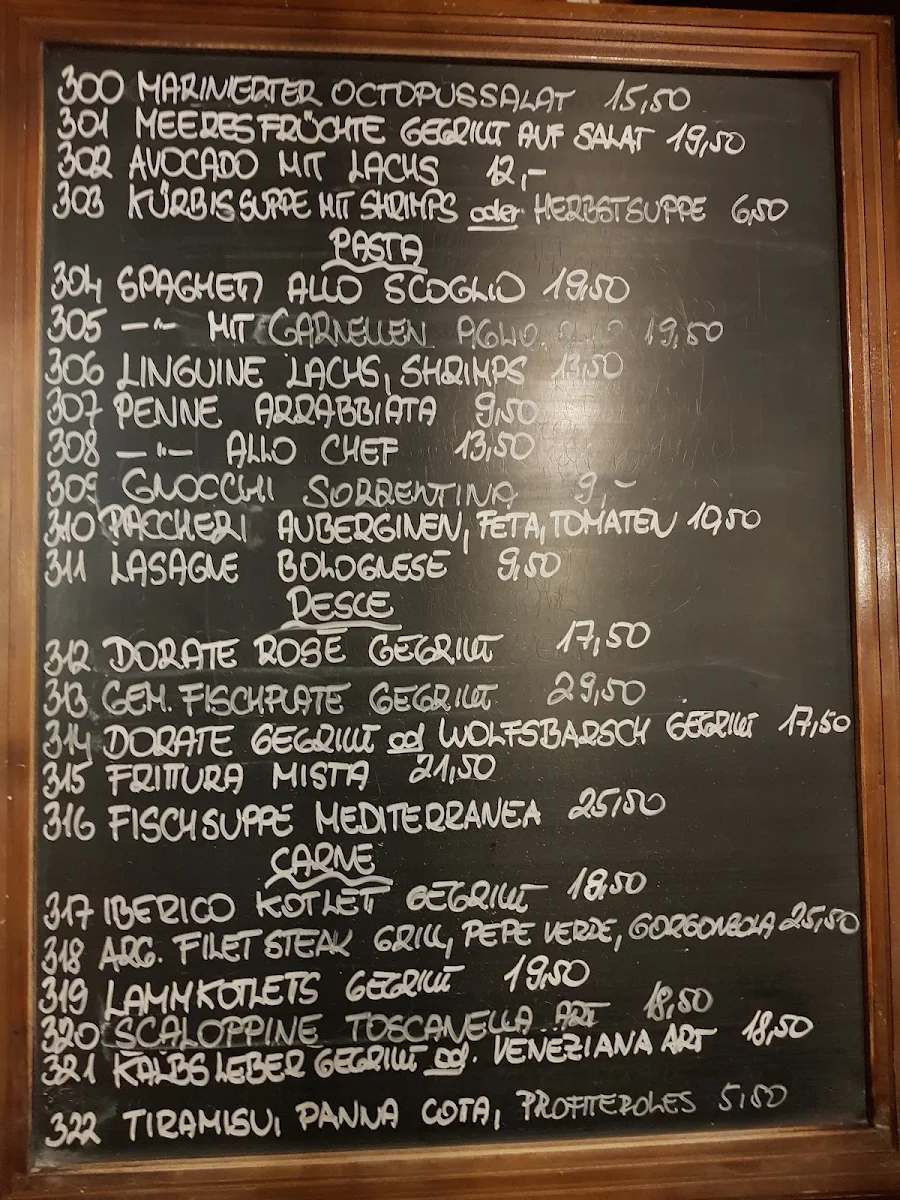 300 MARINIERTER OCTOPUSSALAT 15,50
301 MEERESFRÜCHTE GEGRILLT AUF SALAT 19,50
302 AVOCADO MIT LACHS 12,-
303 KÜRBISSUPPE MIT SHRIMPS oder HERBSTSUPPE 6,50
PASTA
304 SPAGHETI ALLO SCOGLIO 19,50
305 —"— MIT GARNELLEN AGLIO, OLIO 19,50
306 LINGUINE LACHS, SHRIMPS 13,50
307 PENNE ARRABBIATA 9,50
308 —"— ALLO CHEF 13,50
309 GNOCCHI SORRENTINA 9,-
310 PACCHERI AUBERGINEN, FETA, TOMATEN 10,50
311 LASAGNE BOLOGNESE 9,50
PESCE
312 DORATE ROSÉ GEGRILLT 17,50
313 GEM. FISCHPLATE GEGRILLT 29,50
314 DORATE GEGRILLT od WOLFSBARSCH GEGRILLT 17,50
315 FRITTURA MISTA 21,50
316 FISCHSUPPE MEDITERRANEA 25,50
CARNE
317 IBERICO KOTLETT GEGRILLT 18,50
318 ARG. FILETSTEAK GRILL, PEPE VERDE, GORGONZOLA 25,50
319 LAMMKOTLETS GEGRILLT 19,50
320 SCALOPPINE TOSCANELLA ART 18,50
321 KALBSLEBER GEGRILLT od. VENEZIANA ART 18,50
322 TIRAMISU, PANNA COTA, PROFITEROLES 5,50